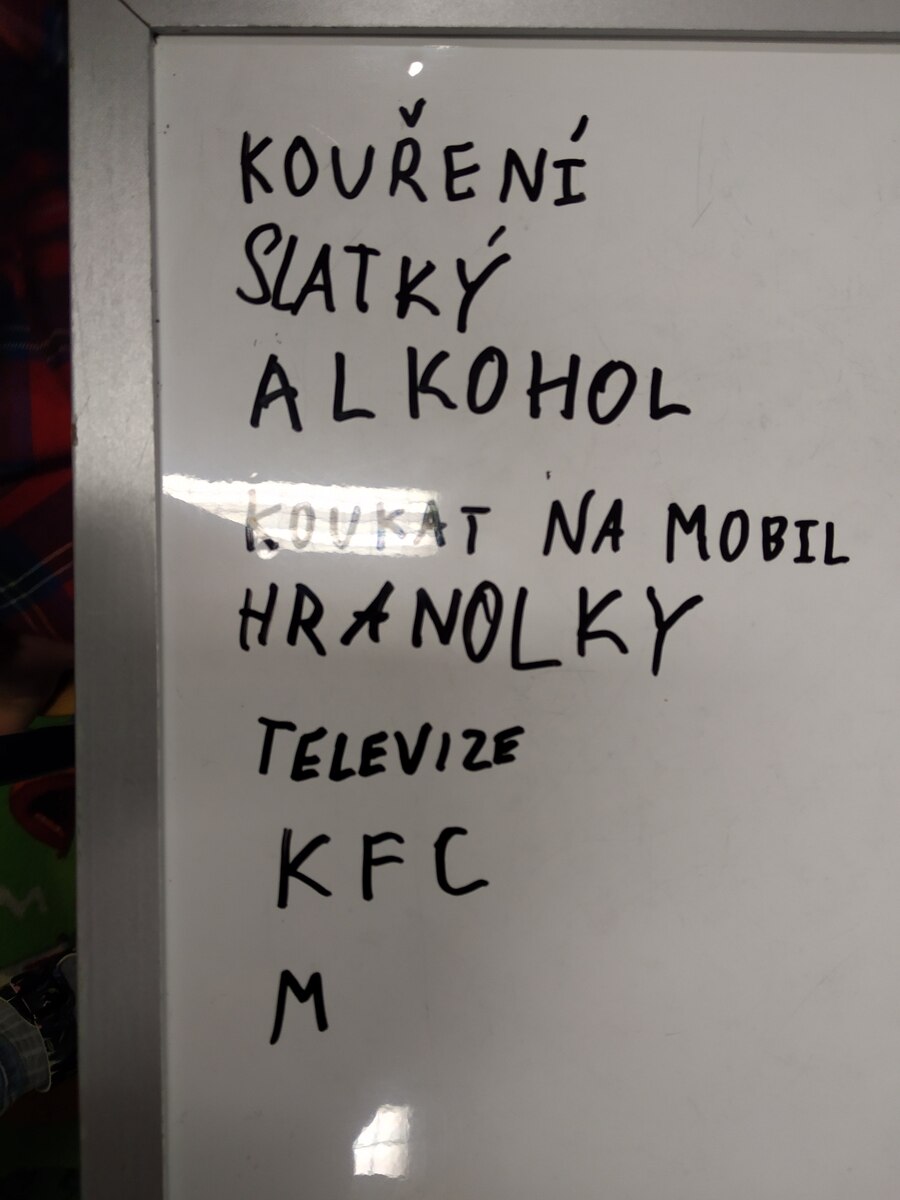 KOUŘENÍ
SLATKÝ
ALKOHOL
KOUKAT NA MOBIL
HRANOLKY
TELEVIZE
KFC
M